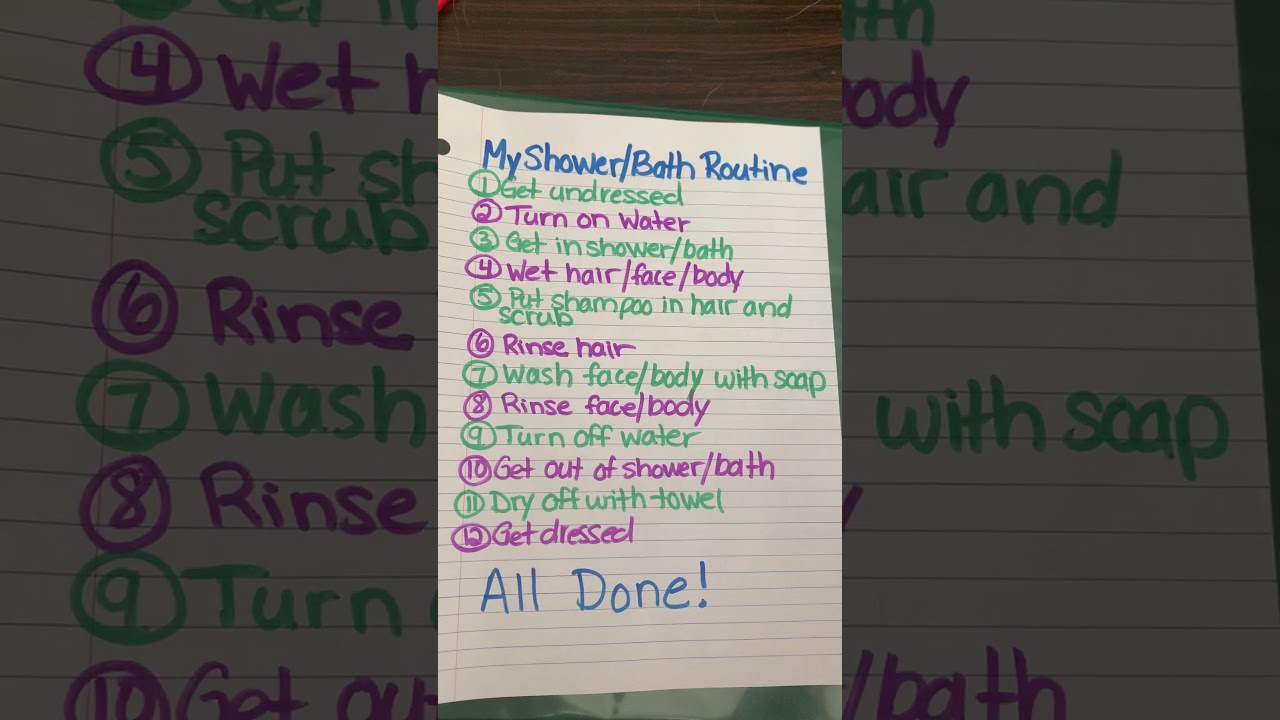 My Shower/Bath Routine
① Get undressed
② Turn on Water
③ Get in shower/bath
④ Wet hair/face/body
⑤ Put shampoo in hair and
scrub
⑥ Rinse hair
⑦ Wash face/body with soap
⑧ Rinse face/body
⑨ Turn off water
⑩ Get out of shower/bath
⑪ Dry off with towel
⑫ Get dressed
All Done!